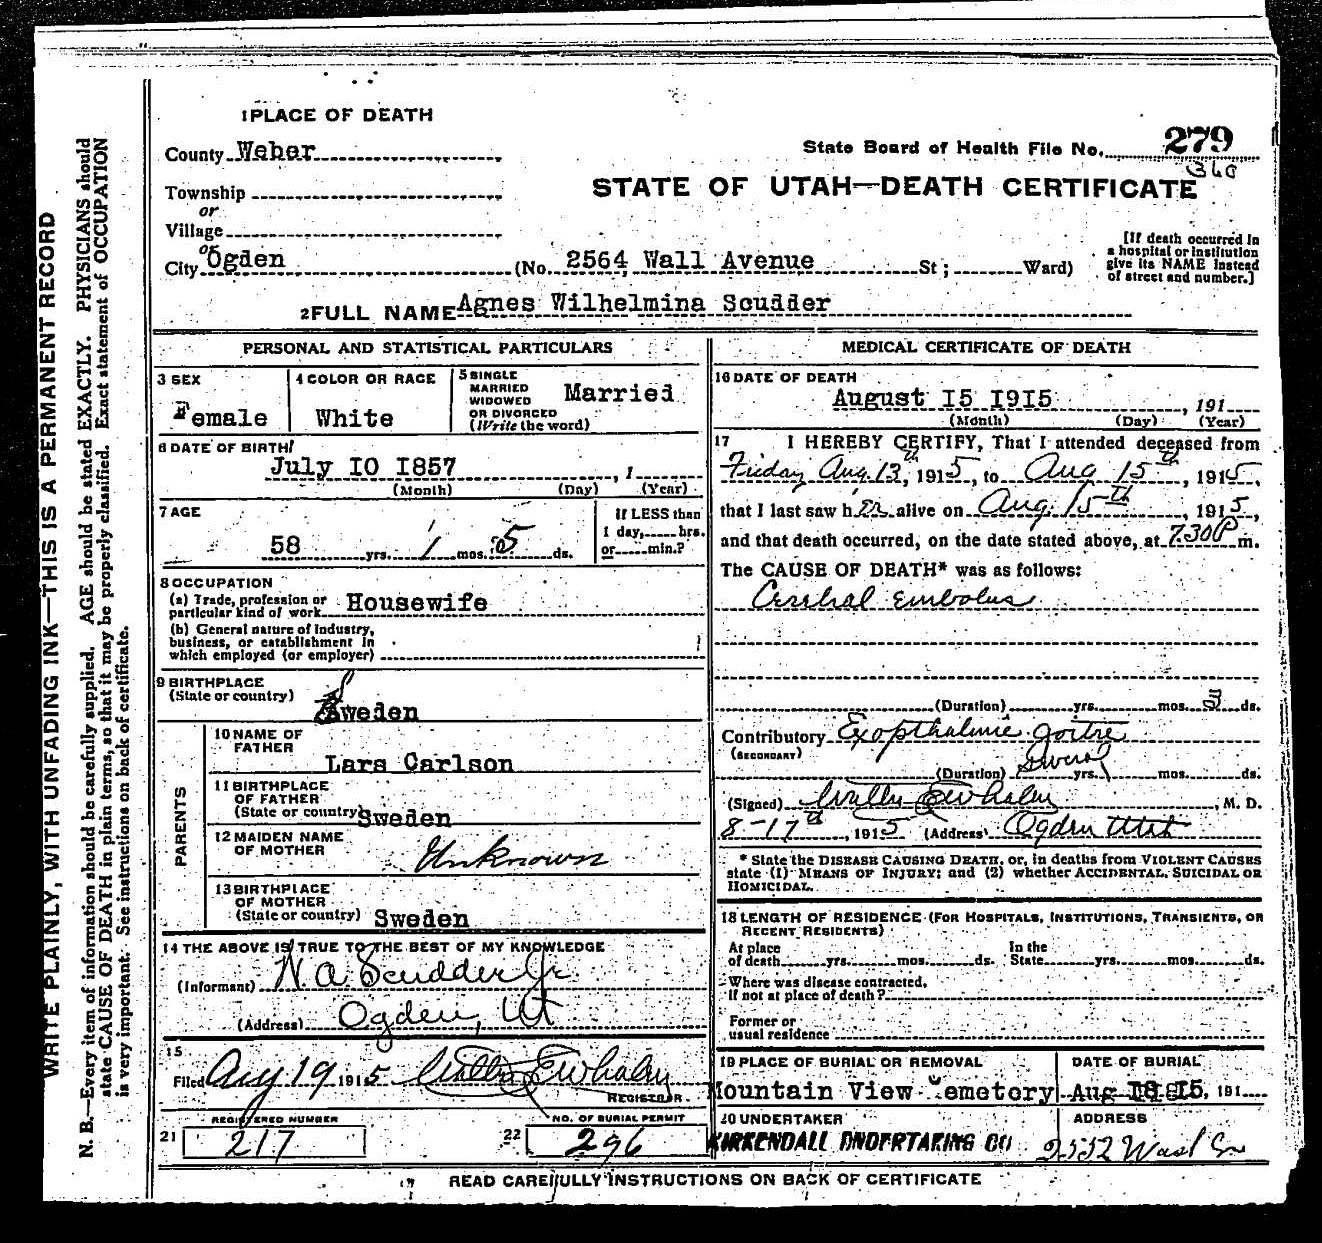 1 PLACE OF DEATH
County Weber
State Board of Health File No. 279
360
Township
STATE OF UTAH—DEATH CERTIFICATE
or
Village
or
City Ogden (No. 2564 Wall Avenue St; Ward)
[If death occurred in a hospital or institution give its NAME instead of street and number.]
2 FULL NAME Agnes Wilhelmina Scudder
PERSONAL AND STATISTICAL PARTICULARS
3 SEX
Female
4 COLOR OR RACE
White
5 SINGLE
MARRIED
WIDOWED
OR DIVORCED
(Write the word)
Married
6 DATE OF BIRTH
July IO I857 , 1
(Month) (Day) (Year)
7 AGE
58 yrs. 1 mos. 5 ds.
If LESS than
1 day, hrs.
or min.?
8 OCCUPATION
(a) Trade, profession or
particular kind of work Housewife
(b) General nature of industry,
business, or establishment in
which employed (or employer)
9 BIRTHPLACE
(State or country)
Sweden
PARENTS
10 NAME OF
FATHER
Lars Carlson
11 BIRTHPLACE
OF FATHER
(State or country) Sweden
12 MAIDEN NAME
OF MOTHER
Unknown
13 BIRTHPLACE
OF MOTHER
(State or country) Sweden
14 THE ABOVE IS TRUE TO THE BEST OF MY KNOWLEDGE
(Informant) W. A. Scudder Jr.
(Address) Ogden, Ut
15
Filed Aug 19 1915
REGISTRAR.
REGISTERED NUMBER
21 217
NO. OF BURIAL PERMIT
22 296
MEDICAL CERTIFICATE OF DEATH
16 DATE OF DEATH
August I5 I9I5 , 191
(Month) (Day) (Year)
17 I HEREBY CERTIFY, That I attended deceased from
Friday Aug. 13th, 1915, to Aug 15th, 1915,
that I last saw her alive on Aug. 15th, 1915,
and that death occurred, on the date stated above, at 7.30P m.
The CAUSE OF DEATH* was as follows:
Cerebral embolus
(Duration) yrs. mos. 3 ds.
Contributory Exopthalmic goitre
(SECONDARY)
(Duration) Several yrs. mos. ds.
(Signed) M. D.
8-17th, 1915 (Address) Ogden Utah
* State the DISEASE CAUSING DEATH, or, in deaths from VIOLENT CAUSES
state (1) MEANS OF INJURY; and (2) whether ACCIDENTAL, SUICIDAL OR
HOMICIDAL.
18 LENGTH OF RESIDENCE (FOR HOSPITALS, INSTITUTIONS, TRANSIENTS, OR
RECENT RESIDENTS)
At place
of death yrs. mos. ds.
In the
State yrs. mos. ds.
Where was disease contracted,
if not at place of death?
Former or
usual residence
19 PLACE OF BURIAL OR REMOVAL
Mountain View Cemetory
DATE OF BURIAL
Aug I8 I5, 191
20 UNDERTAKER
KIRKENDALL UNDERTAKING CO
ADDRESS
READ CAREFULLY INSTRUCTIONS ON BACK OF CERTIFICATE
WRITE PLAINLY, WITH UNFADING INK—THIS IS A PERMANENT RECORD
N. B.—Every item of information should be carefully supplied. AGE should be stated EXACTLY. PHYSICIANS should
state CAUSE OF DEATH in plain terms, so that it may be properly classified. Exact statement of OCCUPATION
is very important. See instructions on back of certificate.